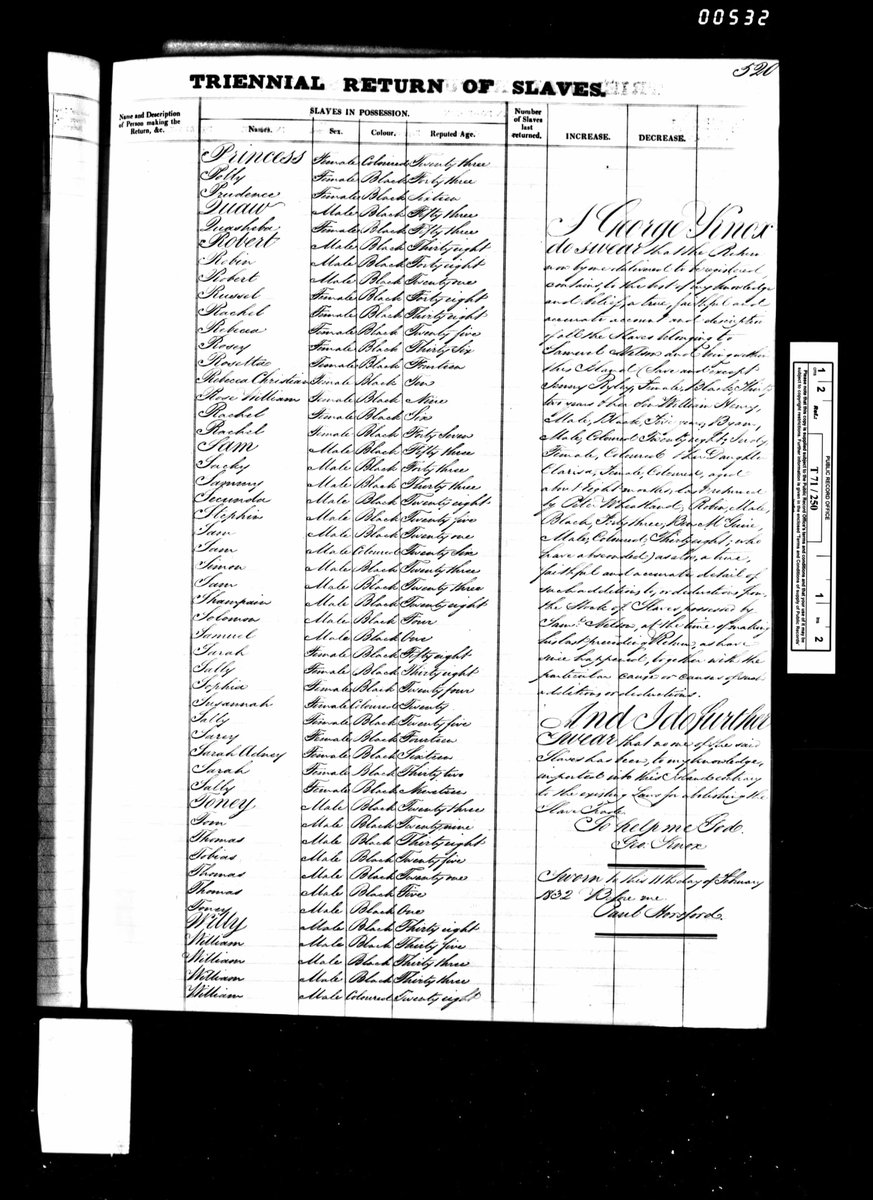 00532
520
TRIENNIAL RETURN OF SLAVES.
Name and Description
of Person making the
Return, &c.
SLAVES IN POSSESSION.
Names. Sex. Colour. Reputed Age.
Number
of Slaves
last
returned.
INCREASE. DECREASE.
Princess Female Coloured Twenty three
Polly Female Black Forty three
Prudence Female Black Sixteen
Quaw Male Black Fifty three
Quasheba Female Black Fifty three
Robert Male Black Thirty eight
Robin Male Black Forty eight
Robert Male Black Twenty one
Russel Female Black Forty eight
Rachel Female Black Thirty eight
Rebecca Female Black Twenty five
Rosey Female Black Thirty Six
Rosettae Female Black Fourteen
Rebecca Christian Female Black Ten
Rose William Female Black Nine
Rachel Female Black Six
Rachel Female Black Forty Seven
Sam Male Black Fifty three
Jacky Male Black Forty three
Sammy Male Black Thirty three
Secunda Male Black Twenty eight
Stephen Male Black Twenty five
Sam Male Black Twenty one
Sam Male Coloured Twenty Six
Simon Male Black Twenty three
Sam Male Black Twenty three
Shampain Male Black Twenty eight
Solomon Male Black Four
Samuel Male Black One
Sarah Female Black Fifty eight
Sally Female Black Thirty eight
Sophia Female Black Twenty four
Susannah Female Coloured Twenty
Sally Female Black Twenty five
Sarey Female Black Fourteen
Sarah Female Black Sixteen
Sarah Female Black Thirty two
Sally Female Black Nineteen
Toney Male Black Twenty three
Tom Male Black Twenty nine
Thomas Male Black Thirty eight
Tobias Male Black Twenty five
Thomas Male Black Twenty one
Thomas Male Black Five
Toney Male Black One
Willy Male Black Thirty eight
William Male Black Thirty five
William Male Black Thirty three
William Male Black Thirty three
William Male Coloured Twenty eight
I George Knox
do swear that the Return
now by me delivered to be registered
contains, to the best of my knowledge
and belief, a true, faithful and
accurate account and description
of all the Slaves belonging to
Samuel Nelson and being within
this Island (Save and Except
Jenny Female, Black, Thirty
two years & her Son William Henry,
Male, Black, Five years,
Male, Coloured Twenty eight,
Female, Coloured & her Daughter
Clarisa, Female, Coloured, aged
about Eight months, last returned
by Peter Robin, Male,
Black, Sixty three, Ben
Male, Coloured, Thirty eight, who
have absconded) as also, a true,
faithful and accurate detail of
such additions to, or deductions from,
the Stock of Slaves, possessed by
Saml. Nelson, at the time of making
his last preceding Return, as have
since happened, together with the
particular cause or causes of such
additions or deductions.
And I do further
Swear that none of the said
Slaves has been, to my knowledge,
imported into this Island contrary
to the existing Laws for abolishing the
Slave Trade.
So help me God.
Geo. Knox
Sworn to this 11th day of February
1832 Before me
Paul Horsford.
PUBLIC RECORD OFFICE
Ref.: T 71 / 250
cms 1 2
ins 1 2
Please note that this copy is supplied subject to the Public Record Office's terms and conditions and that your use of it may be
subject to copyright restrictions. Further information is given in the enclosed 'Terms and Conditions of supply of Public Records'